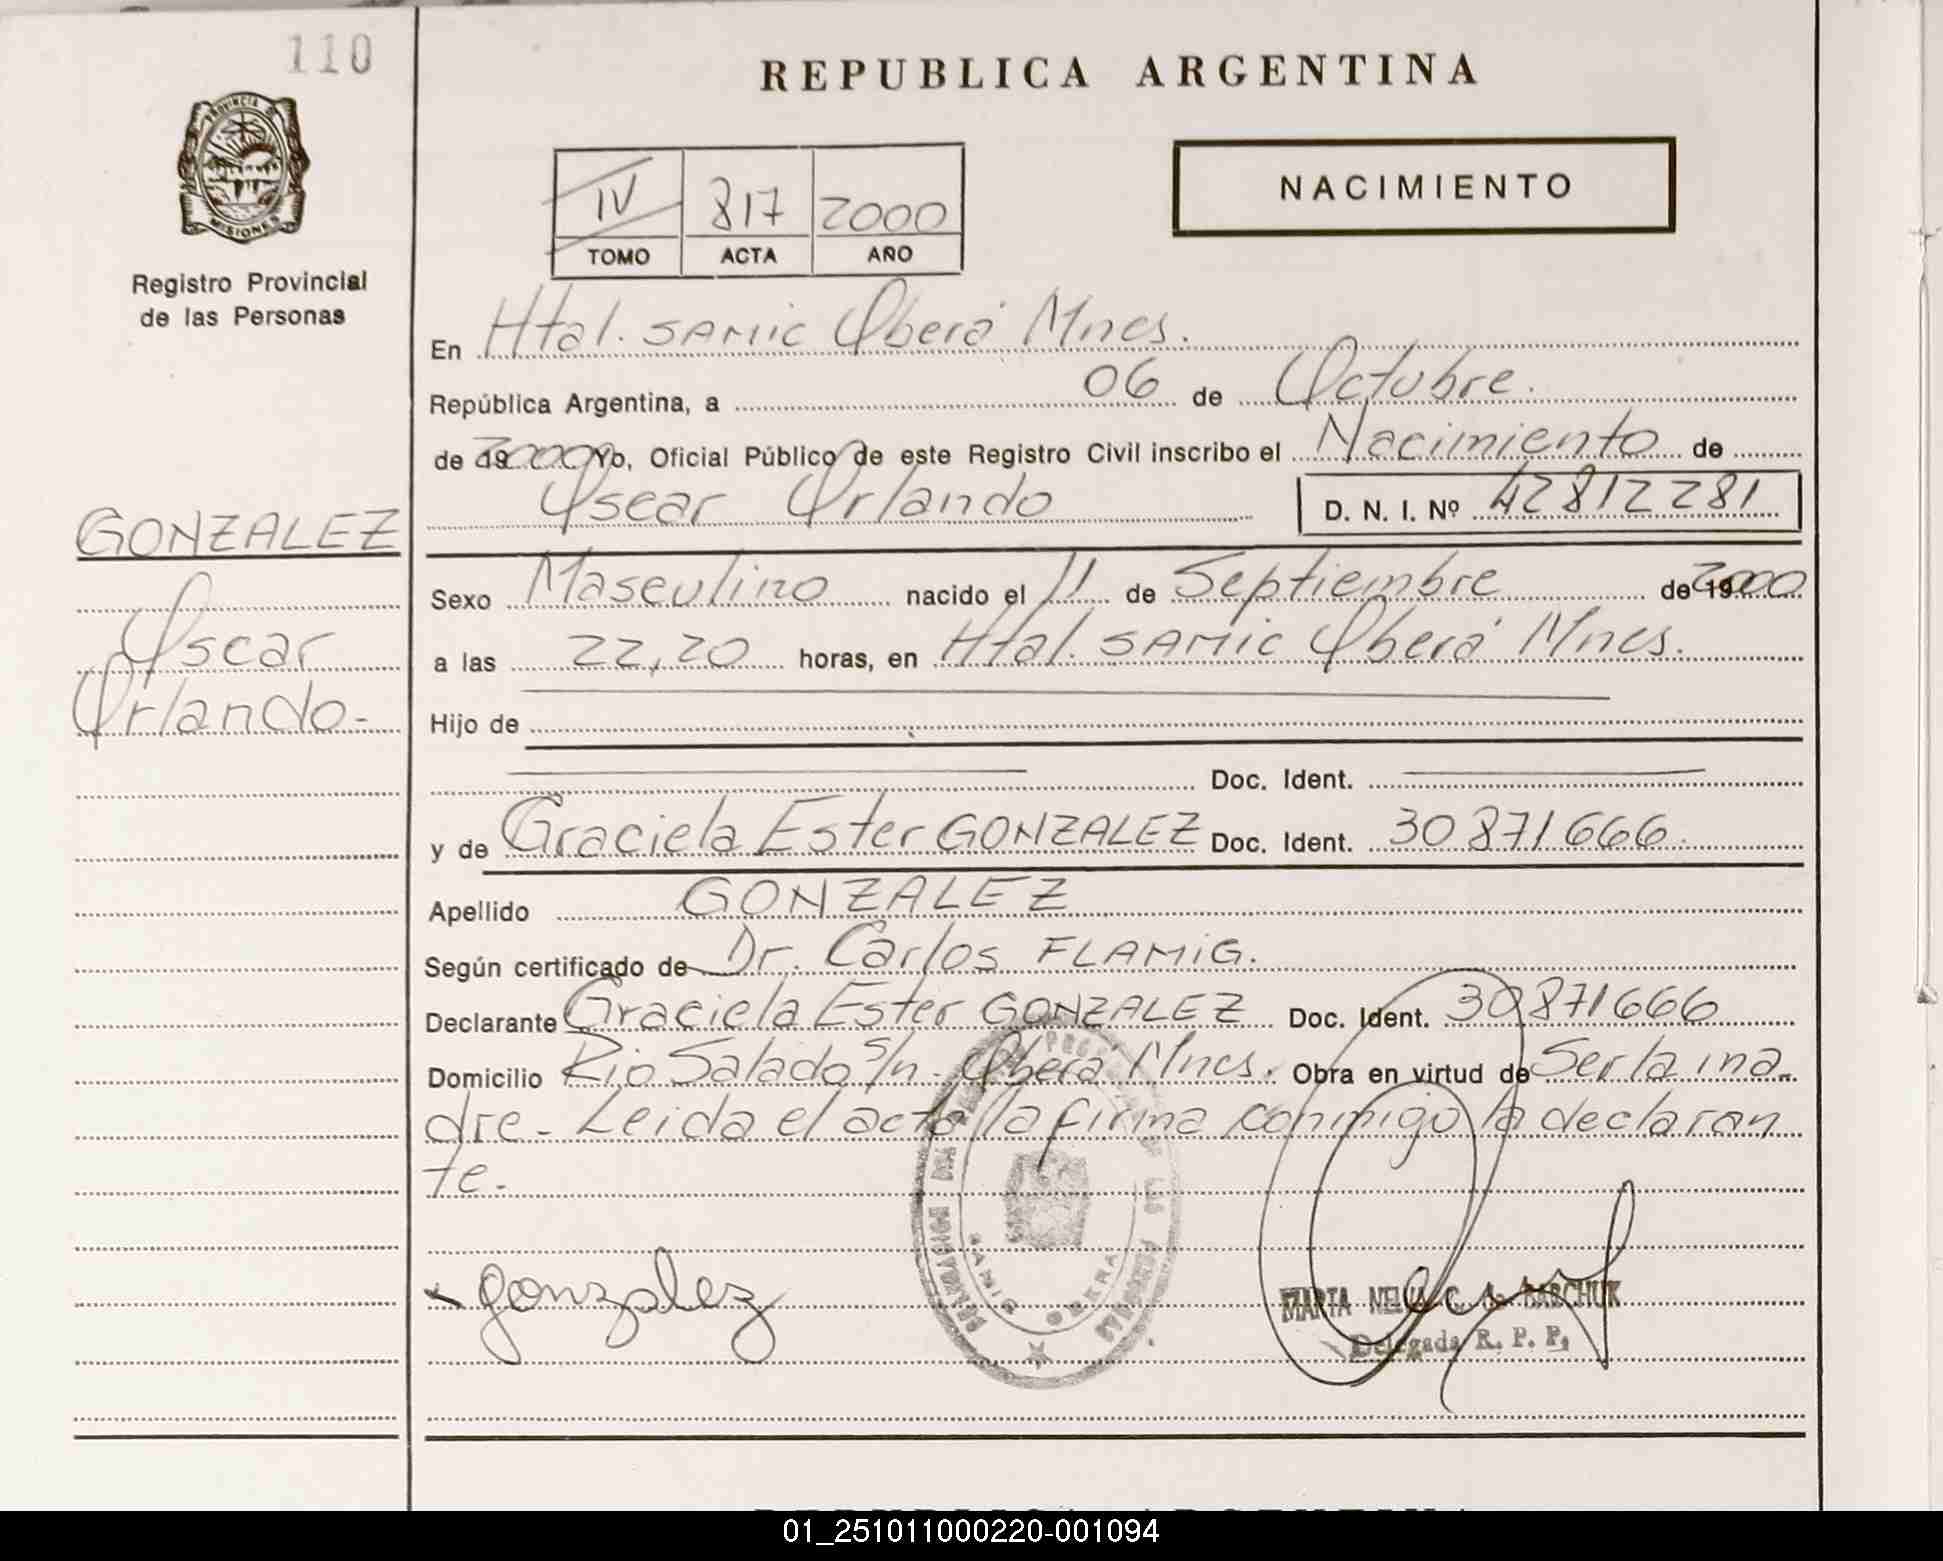 110
PROVINCIA DE
MISIONES
Registro Provincial
de las Personas
GONZALEZ
Oscar
Orlando-
REPUBLICA ARGENTINA
IV 817 2000
TOMO ACTA AÑO
NACIMIENTO
En Htal. SAMIC Oberá Mnes.
República Argentina, a 06 de Octubre.
de 19 2000 Yo, Oficial Público de este Registro Civil inscribo el Nacimiento de
Oscar Orlando D. N. I. Nº 42812281
Sexo Masculino nacido el 11 de Septiembre de 19 2000
a las 22,20 horas, en Htal. SAMIC Oberá Mnes.
Hijo de
Doc. Ident.
y de Graciela Ester GONZALEZ Doc. Ident. 30871666.
Apellido GONZALEZ
Según certificado de Dr. Carlos FLAMIG.
Declarante Graciela Ester GONZALEZ Doc. Ident. 30871666
Domicilio Rio Salado s/n - Oberá Mnes. Obra en virtud de Ser la ma-
dre - Leida el acta la firma conmigo la declaran
te.-
gonzalez
SAMIC OBERA
LAS PERSONAS
MARTA NELIDA C. de BABCHUK
Delegada R. P. P.
REPUBLICA ARGENTINA
01_251011000220-001094